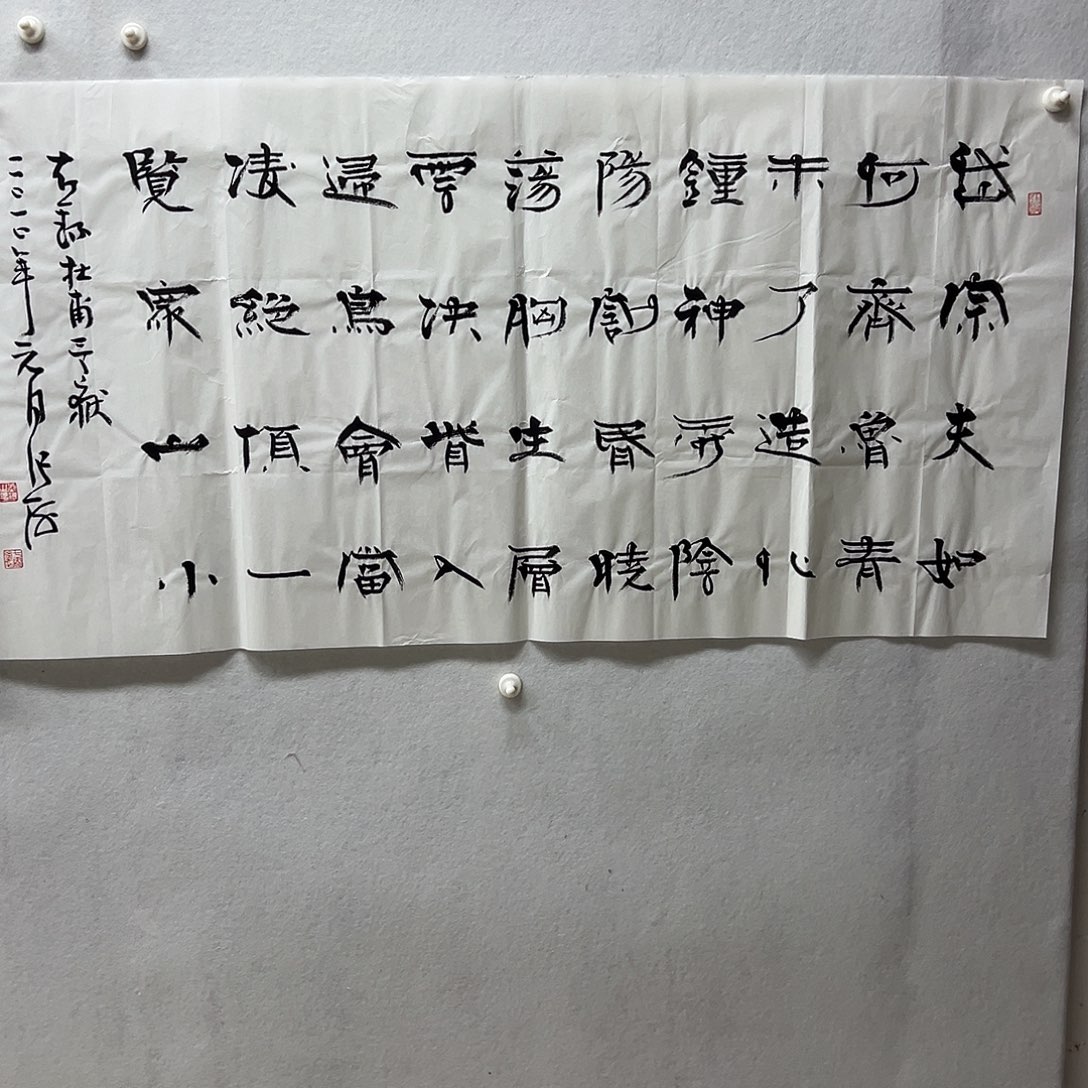 岱宗夫如
何齊魯青
未了造化
鍾神秀陰
陽割昏曉
蕩胸生層
雲決眥入
歸鳥會當
凌絕頂一
覽衆山小
右録杜甫望嶽
年元月